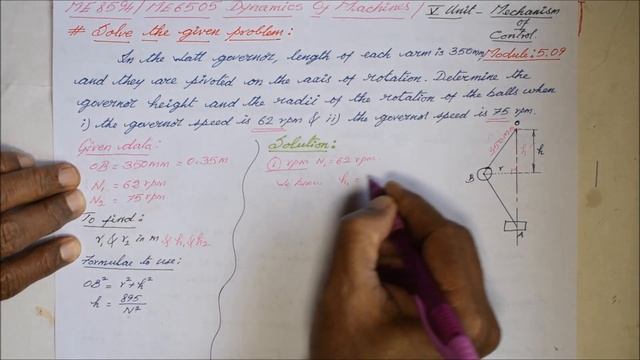 ME8594/ME6505 Dynamics Of Machines/ V Unit - Mechanism of Control
# Solve the given problem:
In the Watt governor, length of each arm is 350mm Module: 5.09
and they are pivoted on the axis of rotation. Determine the
governor height and the radii of the rotation of the balls when
i) the governor speed is 62 rpm & ii) the governor speed is 75 rpm.
Given data:
OB = 350mm = 0.35m
N₁ = 62 rpm
N₂ = 75 rpm
To find:
r₁ & r₂ in m & h₁ & h₂
Formulae to use:
OB² = r² + h²
h = 895/N²
Solution:
(i) rpm N₁ = 62 rpm.
We know h₁ =
O
350mm
h
h
B
r
A